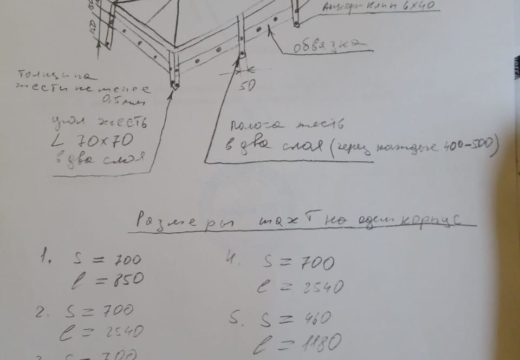 анкерклин 6x40
обвязка
120
50
толщина
жести не менее
0,5мм
угол жесть
L 70x70
в два слоя
полоса жесть
в два слоя (через каждые 400-500)
Размеры шахт на один корпус
1. S = 700
l = 850
2. S = 700
l = 2540
3. S = 700
4. S = 700
l = 2540
5. S = 460
l = 1180